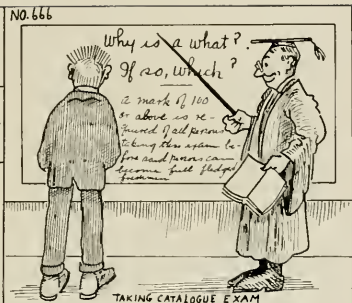 NO. 666
Why is a what?
If so, which?
a mark of 100
or above is re-
quired of all persons
taking this exam be-
fore said persons can
become full fledged
freshmen
TAKING CATALOGUE EXAM